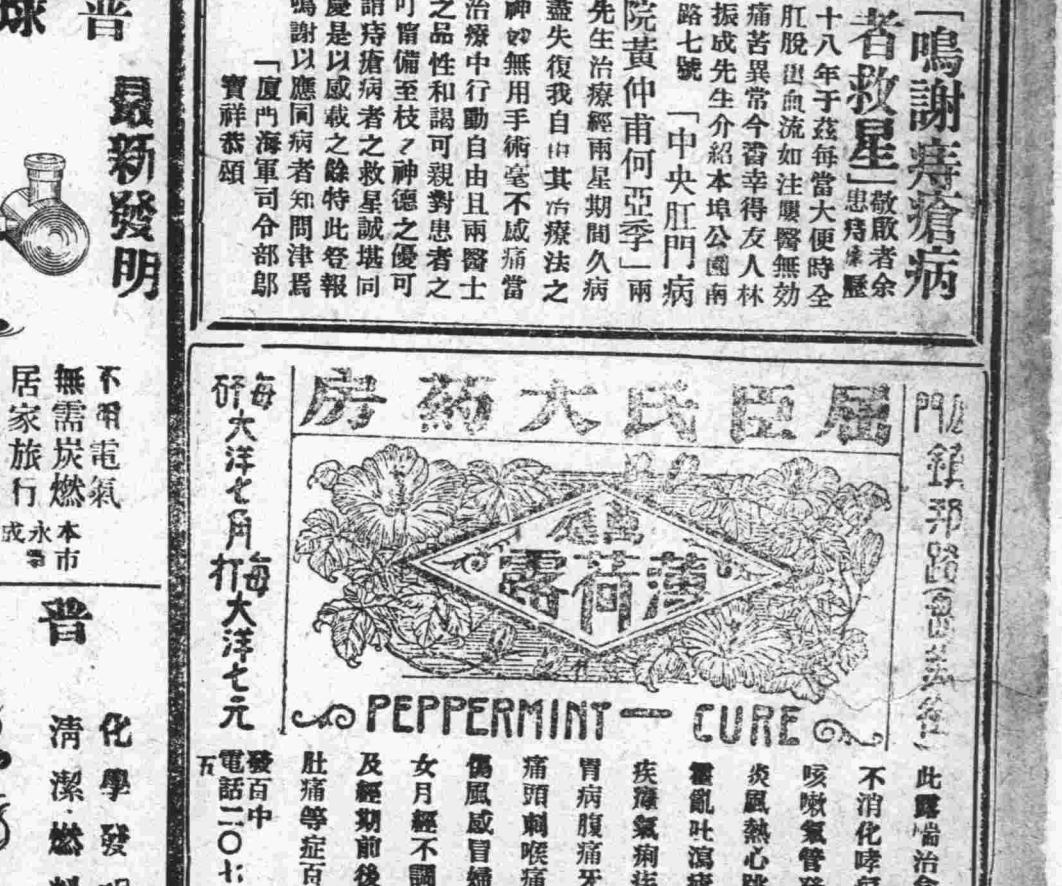 「鳴謝痔瘡病
者救星」敬啟者余
患痔瘡歷
十八年于茲每當大便時全
肛脫出血流如注屢醫無効
痛苦異常今春幸得友人林
振成先生介紹本埠公園南
路七號「中央肛門病
院黃仲甫何亞季」兩
先生治療經兩星期間久病
盡失復我自由其治療法之
神妙無用手術毫不感痛當
治療中行動自由且兩醫士
之品性和謁可親對患者之
可偹備至枝之神德之優可
謂痔瘡病者之救星誠堪同
慶是以感載之餘特此登報
鳴謝以應同病者知問津焉
「廈門海軍司令部鄔
寶祥恭頌
屈臣氏大葯房
薄荷露
PEPPERMINT — CURE
每矸大洋七角
每打大洋七元
此露喘治
不消化哮
咳嗽氣管
炎風熱心跳
霍亂吐瀉
疾瘴氣痢
胃病腹痛牙
痛頭刺喉痛
傷風感冒婦
女月經不調
及經期前後
肚痛等症百
發百中
電話二〇七
五
普
球
最新發明
不用電氣
無需炭燃
居家旅行
本市
永
成
普
化學發明
清潔燃料